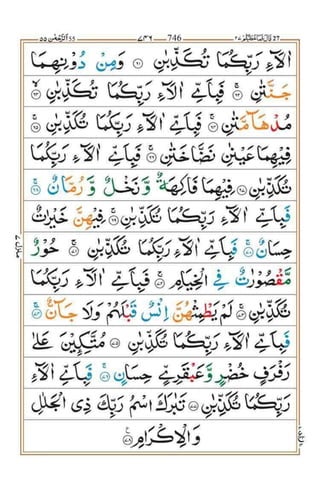 قَالَ فَمَا خَطْبُكُمْ ٢٧ 746 ٧٤٦ اَلرَّحْمٰن ٥٥
اٰلَآءِ رَبِّكُمَا تُكَذِّبٰنِ ﴿٦١﴾ وَمِنْ دُوْنِهِمَا
جَنَّتٰنِ ﴿٦٢﴾ فَبِاَيِّ اٰلَآءِ رَبِّكُمَا تُكَذِّبٰنِ ﴿٦٣﴾
مُدْهَآمَّتٰنِ ﴿٦٤﴾ فَبِاَيِّ اٰلَآءِ رَبِّكُمَا تُكَذِّبٰنِ ﴿٦٥﴾
فِيْهِمَا عَيْنٰنِ نَضَّاخَتٰنِ ﴿٦٦﴾ فَبِاَيِّ اٰلَآءِ رَبِّكُمَا
تُكَذِّبٰنِ ﴿٦٧﴾ فِيْهِمَا فَاكِهَةٌ وَّنَخْلٌ وَّرُمَّانٌ ﴿٦٨﴾
فَبِاَيِّ اٰلَآءِ رَبِّكُمَا تُكَذِّبٰنِ ﴿٦٩﴾ فِيْهِنَّ خَيْرٰتٌ
حِسَانٌ ﴿٧٠﴾ فَبِاَيِّ اٰلَآءِ رَبِّكُمَا تُكَذِّبٰنِ ﴿٧١﴾ حُوْرٌ
مَّقْصُوْرٰتٌ فِي الْخِيَامِ ﴿٧٢﴾ فَبِاَيِّ اٰلَآءِ رَبِّكُمَا
تُكَذِّبٰنِ ﴿٧٣﴾ لَمْ يَطْمِثْهُنَّ اِنْسٌ قَبْلَهُمْ وَلَا جَآنٌّ ﴿٧٤﴾
فَبِاَيِّ اٰلَآءِ رَبِّكُمَا تُكَذِّبٰنِ ﴿٧٥﴾ مُتَّكِـِٕيْنَ عَلٰى
رَفْرَفٍ خُضْرٍ وَّعَبْقَرِيٍّ حِسَانٍ ﴿٧٦﴾ فَبِاَيِّ اٰلَآءِ
رَبِّكُمَا تُكَذِّبٰنِ ﴿٧٧﴾ تَبٰرَكَ اسْمُ رَبِّكَ ذِي الْجَلٰلِ
وَالْاِكْرَامِ ﴿٧٨﴾
منزل ٧